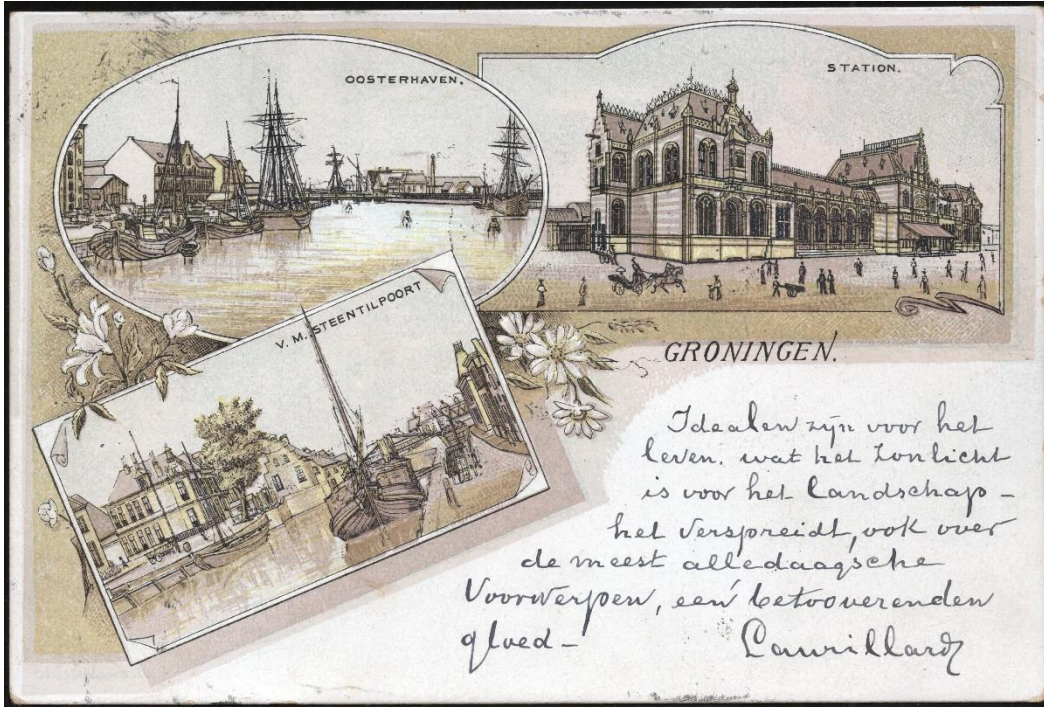 OOSTERHAVEN.
STATION.
V. M. STEENTILPOORT
GRONINGEN.
Idealen zijn voor het
leven. wat het Zonlicht
is voor het landschap –
het verspreidt, ook over
de meest alledaagsche
Voorwerpen, een betooverenden
gloed –
Laurillard